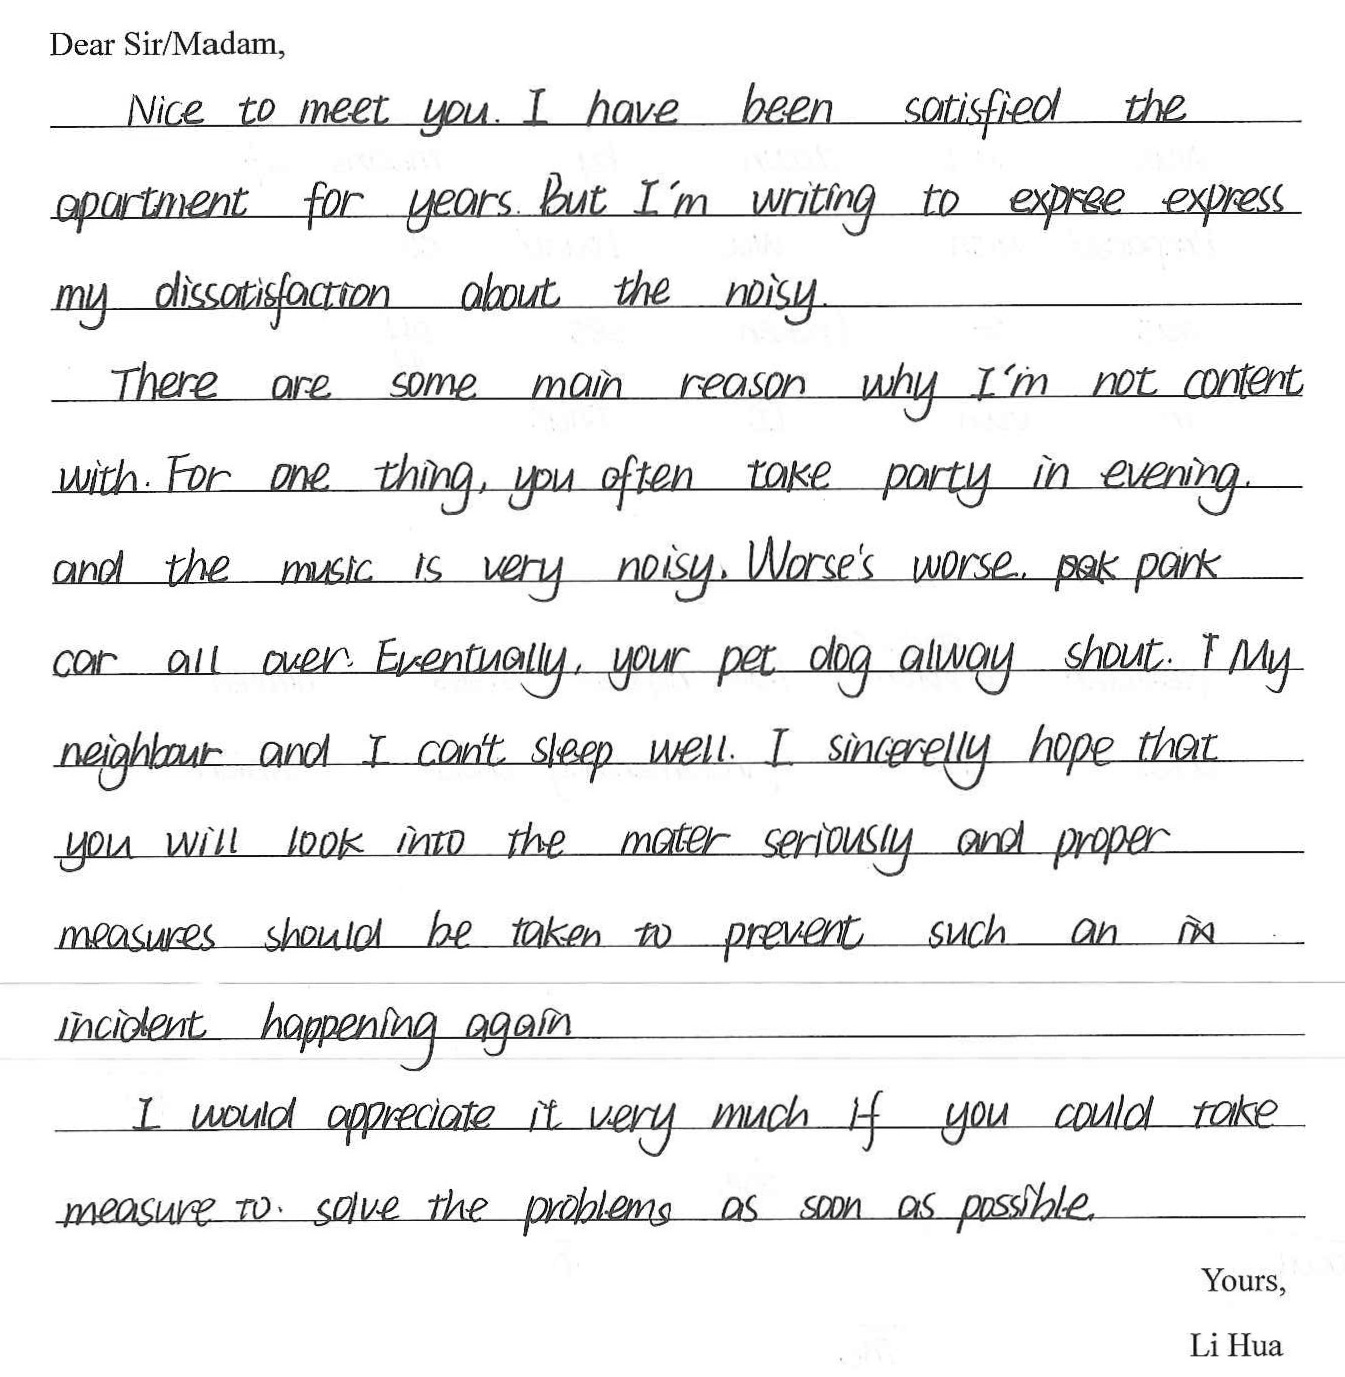 Dear Sir/Madam,
Nice to meet you. I have been satisfied the
apartment for years. But I'm writing to expree express
my dissatisfaction about the noisy.
There are some main reason why I'm not content
with. For one thing, you often take party in evening.
and the music is very noisy. Worse's worse. pak park
car all over. Eventually, your pet dog alway shout. T My
neighbour and I can't sleep well. I sincerelly hope that
you will look into the mater seriously and proper
measures should be taken to prevent such an in
incident happening again
I would appreciate it very much if you could take
measure to. solve the problems as soon as possible.
Yours,
Li Hua